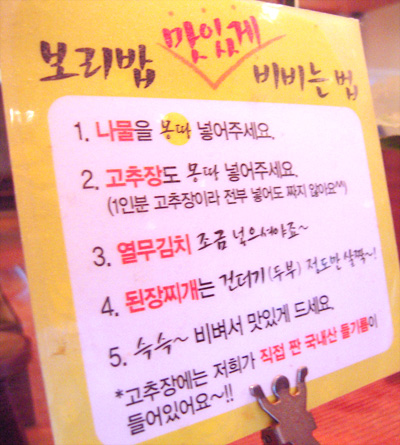 보리밥 맛있게 비비는 법
1. 나물을 몽따 넣어주세요.
2. 고추장도 몽따 넣어주세요.
(1인분 고추장이라 전부 넣어도 짜지 않아요^^)
3. 열무김치 조금 넣으셔야죠~
4. 된장찌개는 건더기(두부) 정도만 살짝~!
5. 슥슥~ 비벼서 맛있게 드세요.
*고추장에는 저희가 직접 짠 국내산 들기름이
들어있어요~!!